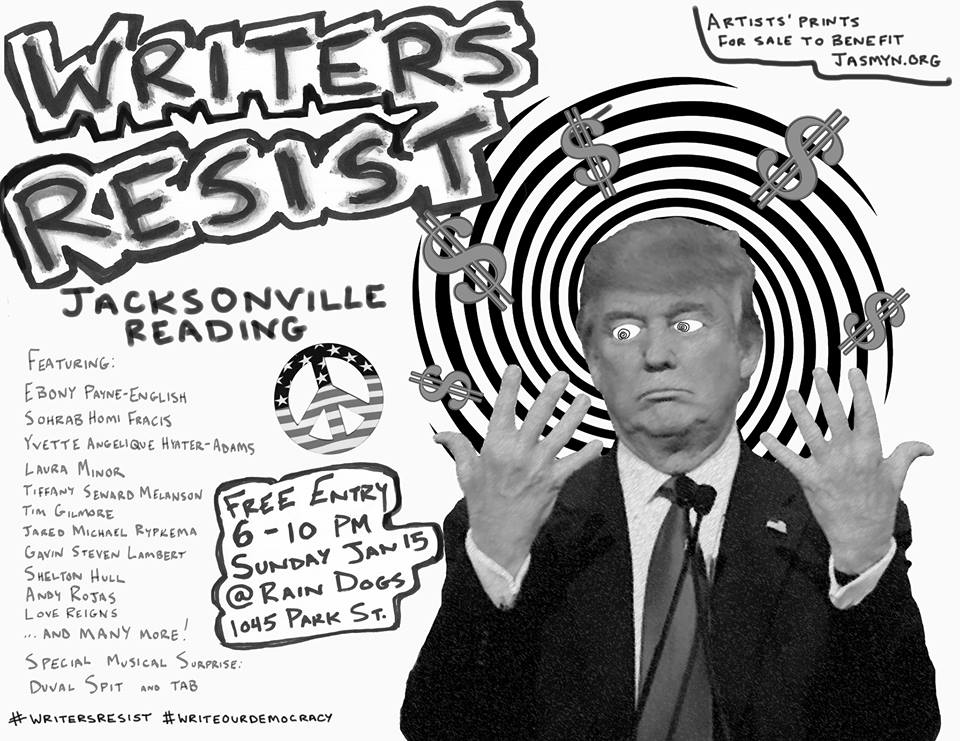 WRITERS
RESIST
ARTISTS' PRINTS
FOR SALE TO BENEFIT
JASMYN.ORG
JACKSONVILLE
READING
FEATURING:
EBONY PAYNE-ENGLISH
SOHRAB HOMI FRACIS
YVETTE ANGELIQUE HYATER-ADAMS
LAURA MINOR
TIFFANY SEWARD MELANSON
TIM GILMORE
JARED MICHAEL RYPKEMA
GAVIN STEVEN LAMBERT
SHELTON HULL
ANDY ROJAS
LOVE REIGNS
... AND MANY MORE!
SPECIAL MUSICAL SURPRISE:
DUVAL SPIT AND TAB
FREE ENTRY
6-10 PM
SUNDAY JAN 15
@ RAIN DOGS
1045 PARK ST.
#WRITERSRESIST #WRITEOURDEMOCRACY